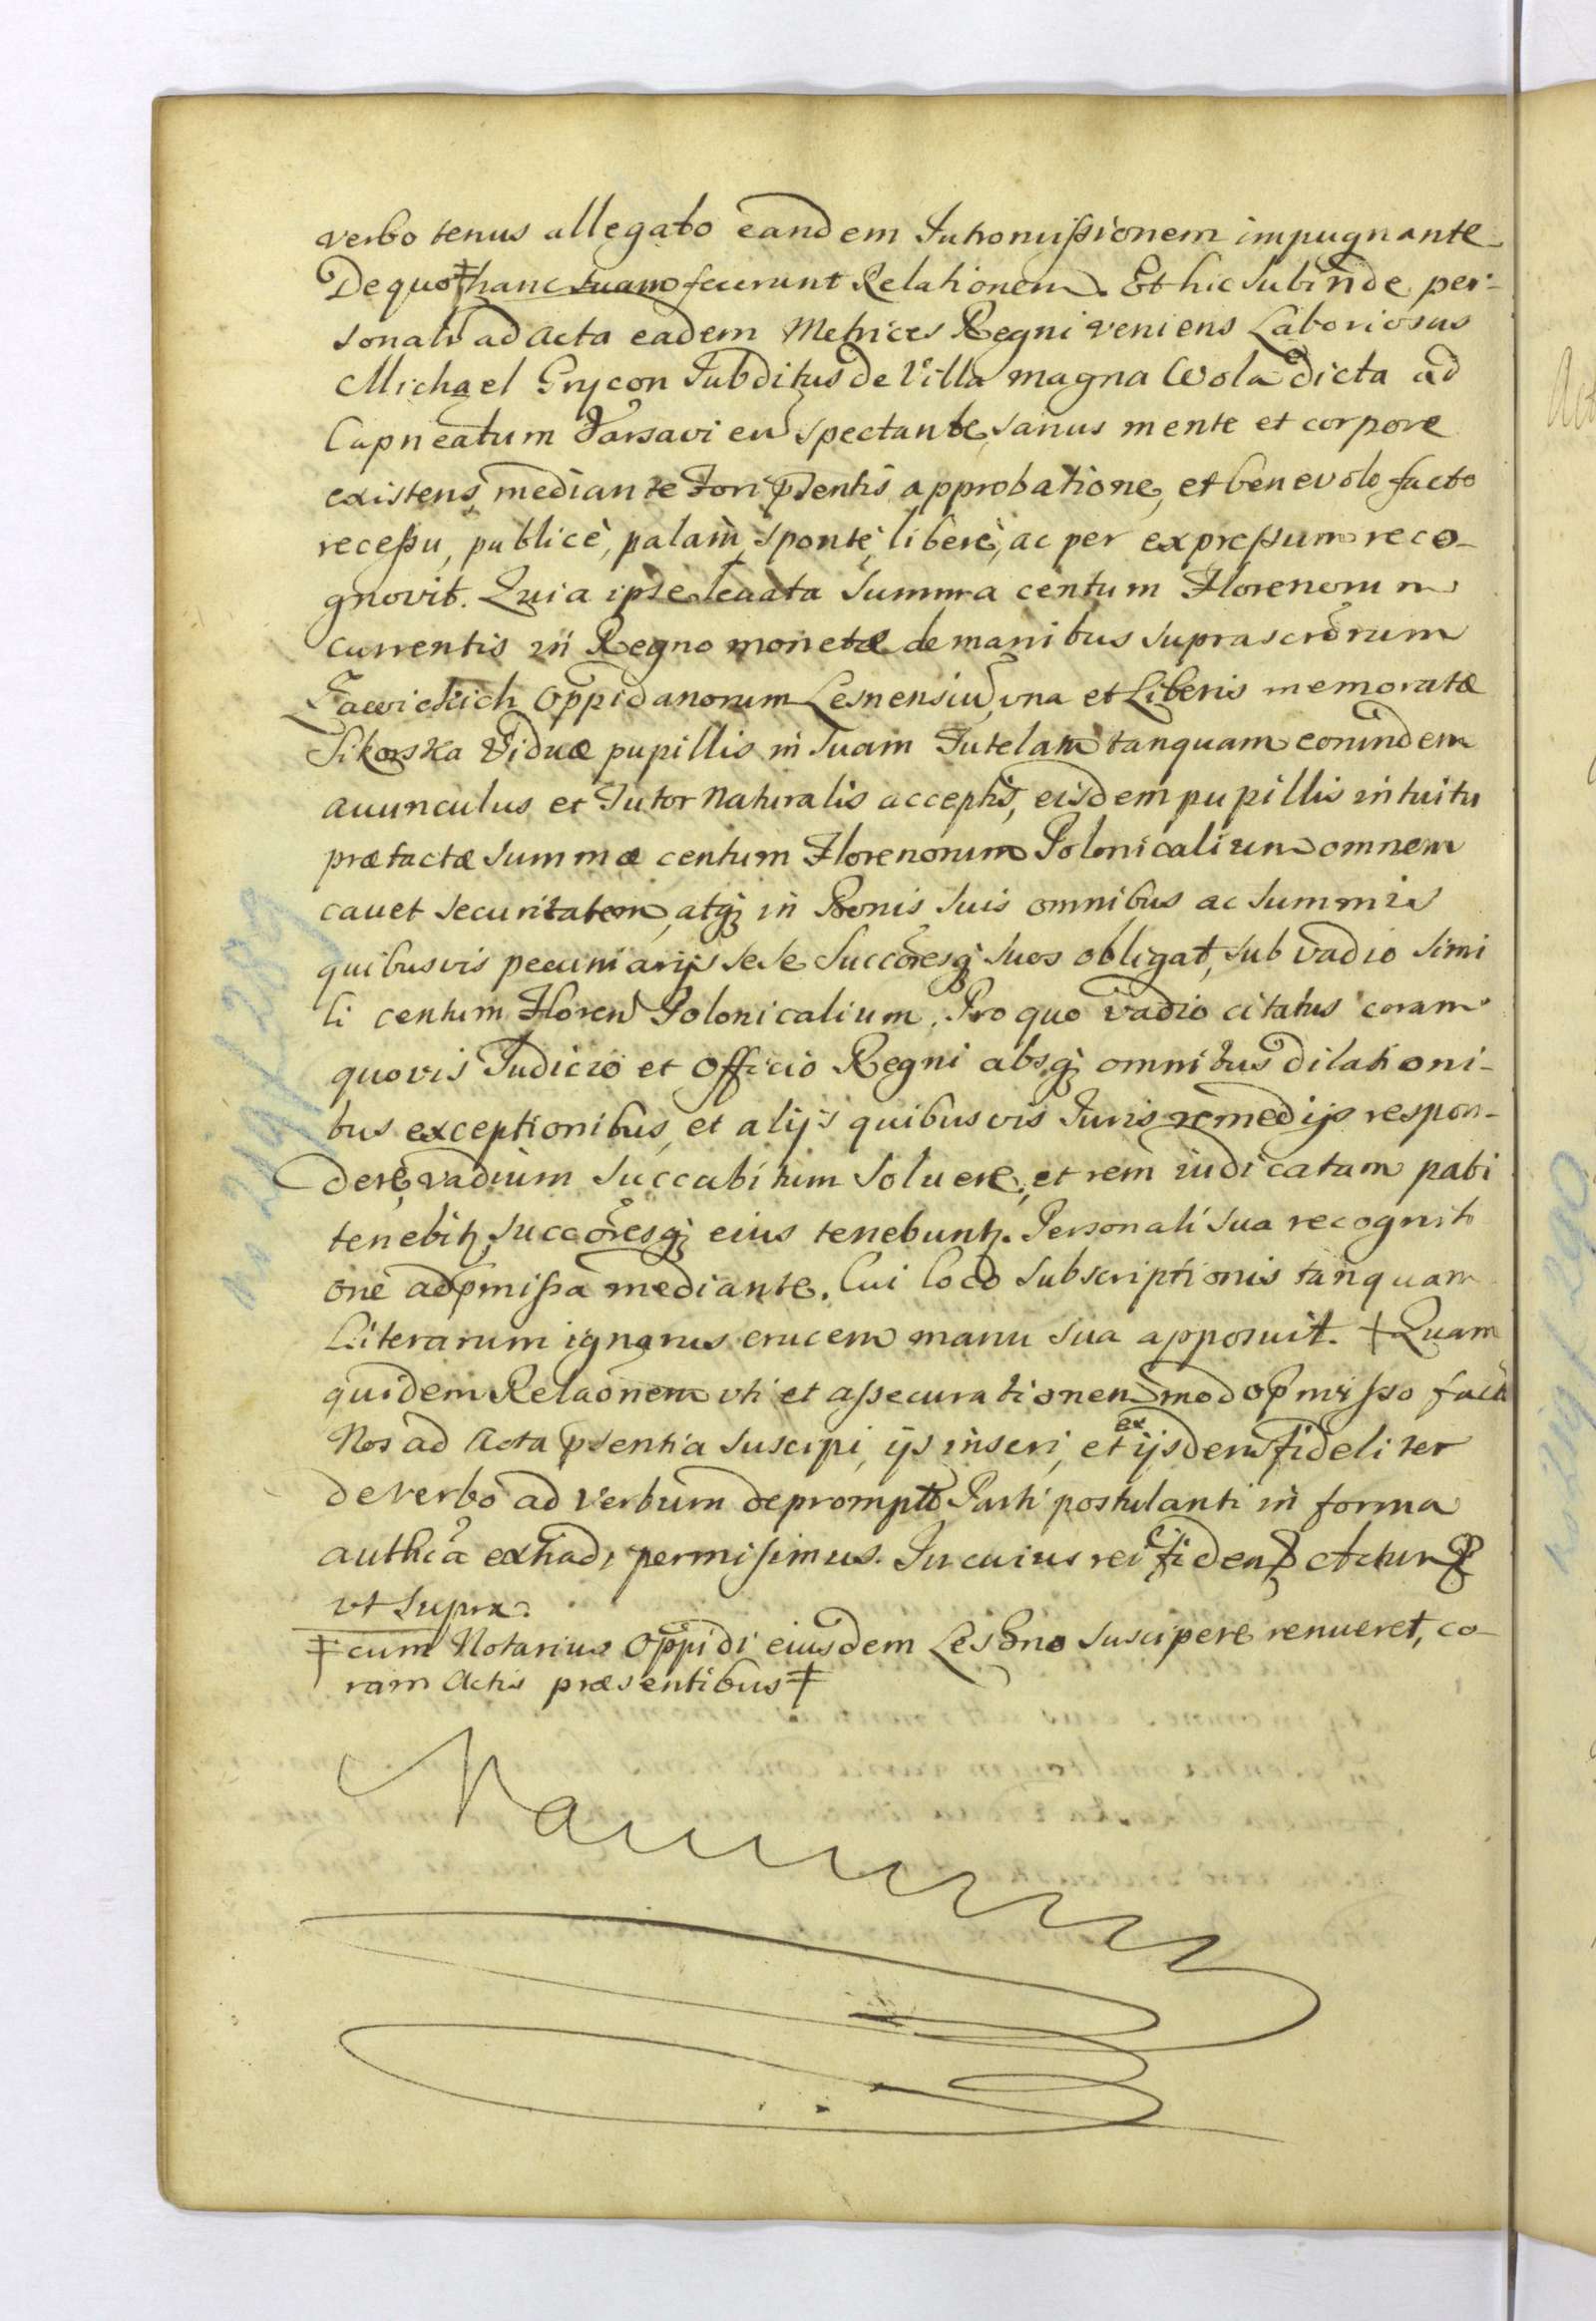 verbo tenus allegato eandem Intromissionem impugnante
De quo ‡ hanc suam fecerunt Relationem. Et hic subinde per-
sonalr ad Acta eadem Metrices Regni veniens Laboriosus
Michael Grycon Subditus de Villa magna Wola dicta ad
Capneatum Varsavien spectante, sanus mente et corpore
existens, mediante Fori pñtis approbatione, et benevolo facto
recessu, publicè, palam, sponte, liberè, ac per expressum reco-
gnovit. Quia ipse levata summa centum Florenorum
currentis in Regno monetæ de manibus suprascrorum
Zawichich Oppidanorum Lesnensiũ, una et Liberis memoratæ
Sikorska Viduæ pupillis in suam Tutelam tanquam eorundem
avunculus et Tutor Naturalis acceptis, eisdem pupillis intuitu
præfactæ summæ centum Florenorum Polonicalium omnem
cavet securitatem, atq in Bonis suis omnibus ac summis
quibusvis pecuniarijs sese Succõresq suos obligat, sub vadio simi
li centum Floren Polonicalium. Pro quo vadio citatus coram
quovis Judicio et Officio Regni absq omnibus dilationi-
bus exceptionibus, et alijs quibusvis Juris remedijs respon-
dere, vadium succubitum soluere, et rem iudicatam pati
tenebitr, succõresq eius tenebuntr. Personali sua recogniti
one ad pmissa mediante. Cui loco subscriptionis tanquam
Literarum ignarus crucem manu sua apposuit. ‡ Quam
quidem Relaõnem uti et assecurationem modo pmisso factã
Nos ad Acta psentia suscipi, ijs inseri, et ex ijsdem fideliter
de verbo ad verbum depromptã Parti postulanti in forma
authcã extradi permisimus. In cuius rei fidem Actum
ut supra.
‡ cum Notarius Oppidi eiusdem Leszno suscipere renueret, co-
ram Actis præsentibus ‡